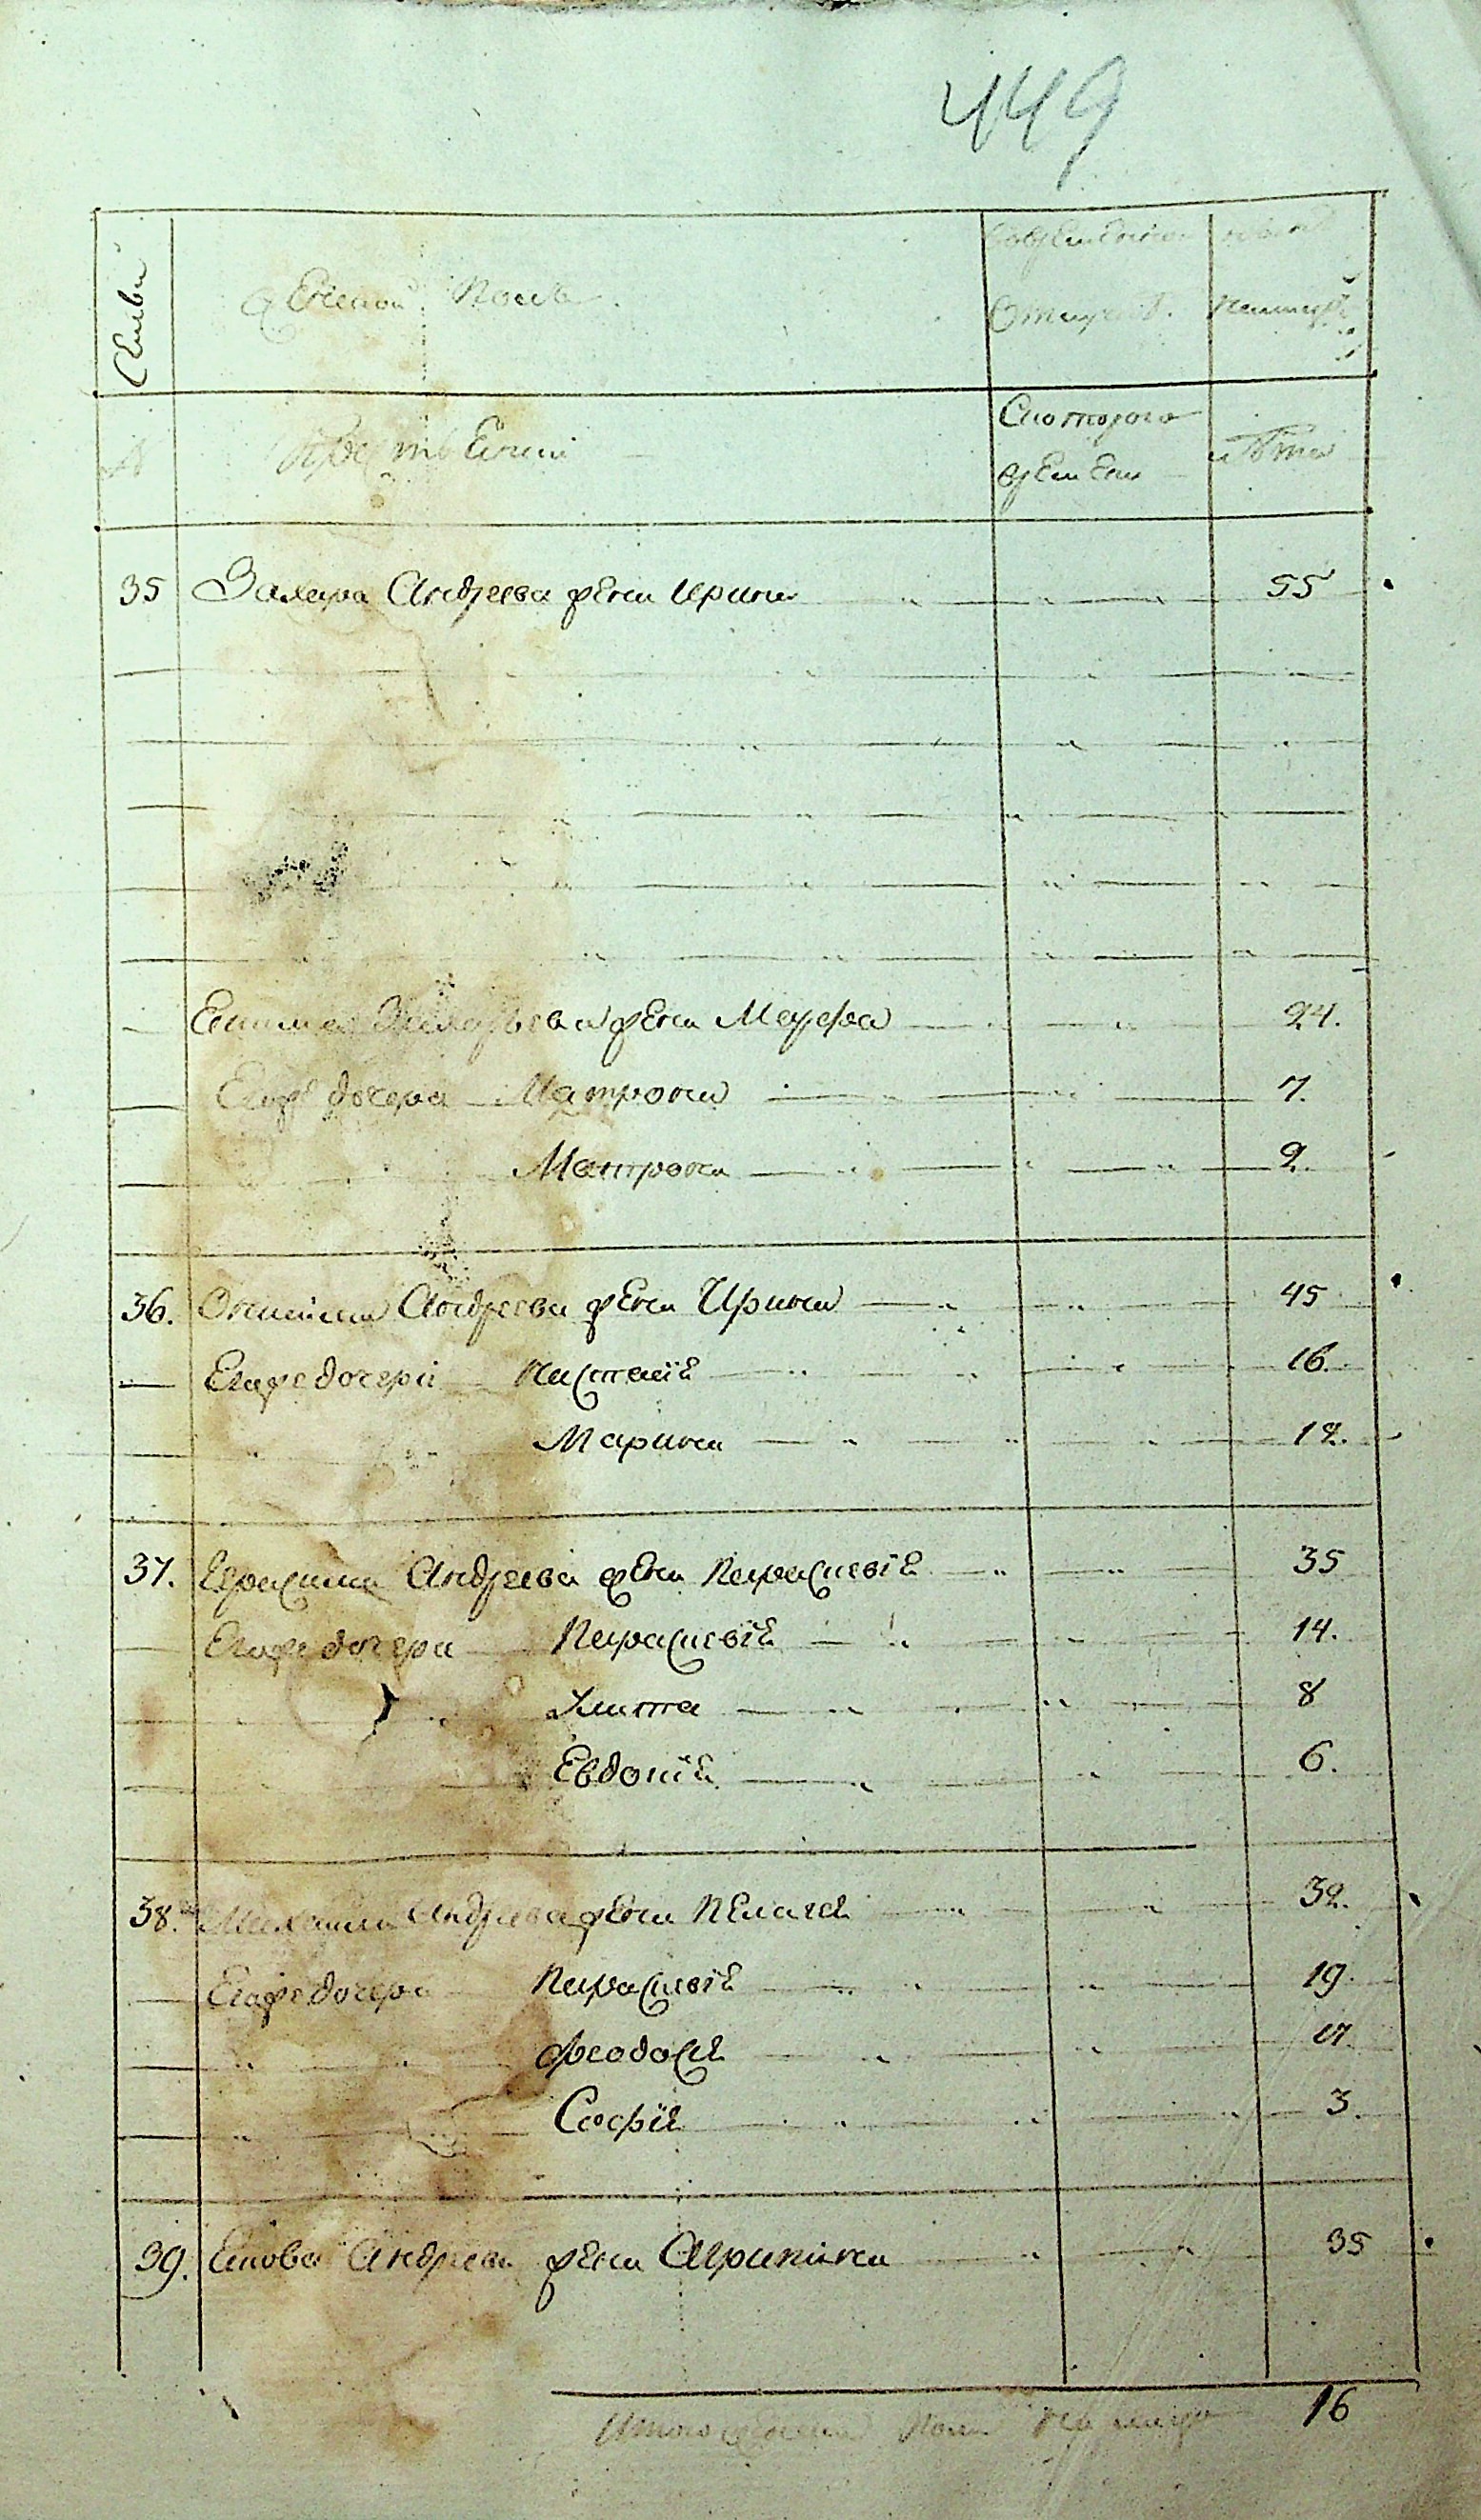 449
Семьи
Женской Полъ.
Во временной
отлучкѣ.
Ныне
на лицо
№
Крестьяне
Скоторого
времени
лѣта
35 Захара Андреева жена Ирина 55
Екима Захарьева жена Марфа 24.
Егоже дочери Матрона 7.
Матрона 2
36. Онисима Андреева жена Ирина 45
Егоже дочери Настасiя 16.
Марина 12.
37. Герасима Андреева жена Парасковiя 35
Егоже дочери Парасковiя 14.
Улита 8
Евдокiя 6.
38. Михаила Андреева жена Пелагея 32.
Егоже дочери Парасковiя 19.
Феодосья 17
Софiя 3.
39. Якова Андреева жена Агрипина 35
Итого женска пола на лицо 16